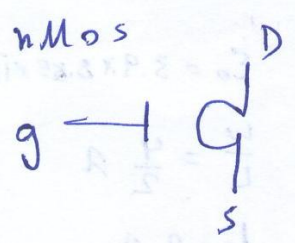 nMos
D
g
S